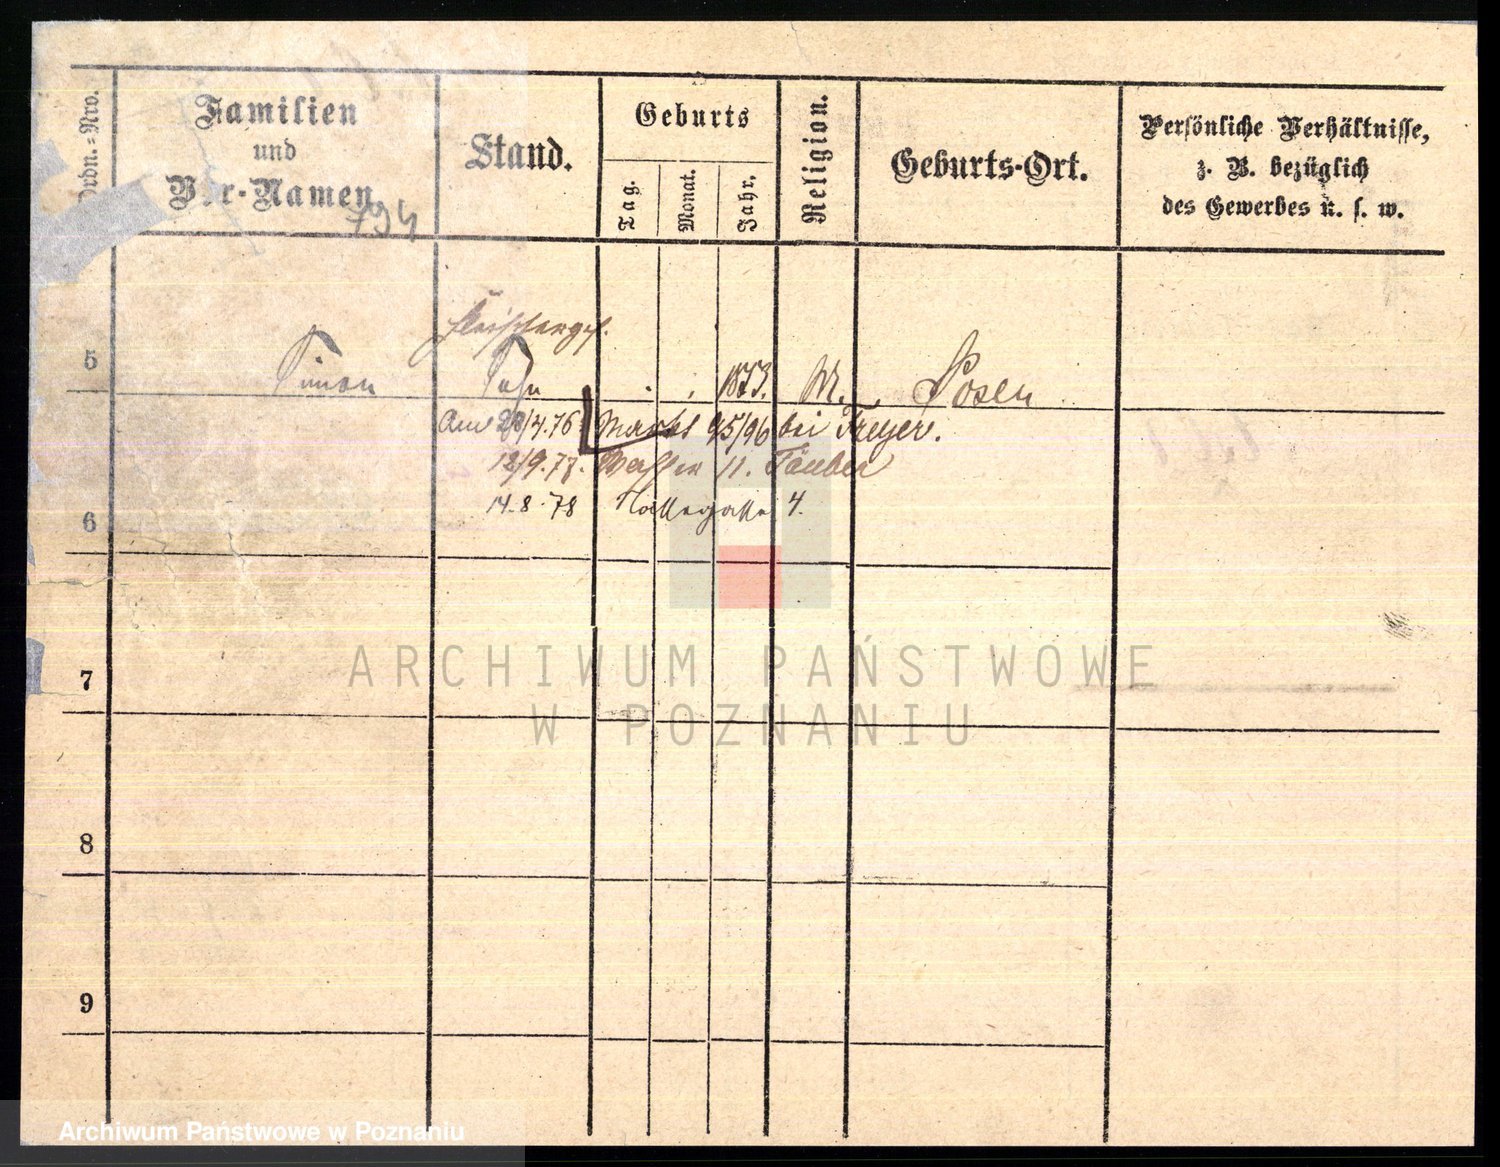 Ordn.=Nro.
Familien
und
Vor-Namen.
Stand.
Geburts
Tag.
Monat.
Jahr.
Religion.
Geburts-Ort.
Persönliche Verhältnisse,
z. B. bezüglich
des Gewerbes u. s. w.
794
Fleischerges.
5 Simon Sohn 1873. M. Posen
Am 28/4.76 Markt 95/96 bei Freyer.
12/9.77. Wasser 11. Täuber
14.8.78 4.
6
7
8
9
ARCHIWUM PAŃSTWOWE
W POZNANIU
Archiwum Państwowe w Poznaniu